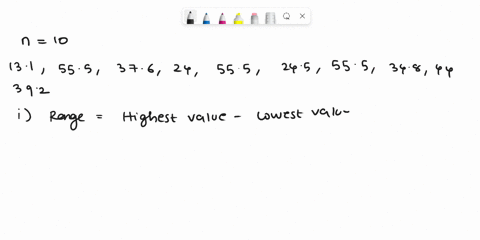 n = 10
13.1, 55.5, 37.6, 24, 55.5, 24.5, 55.5, 34.8, 44
39.2
i) Range = Highest value - Lowest value